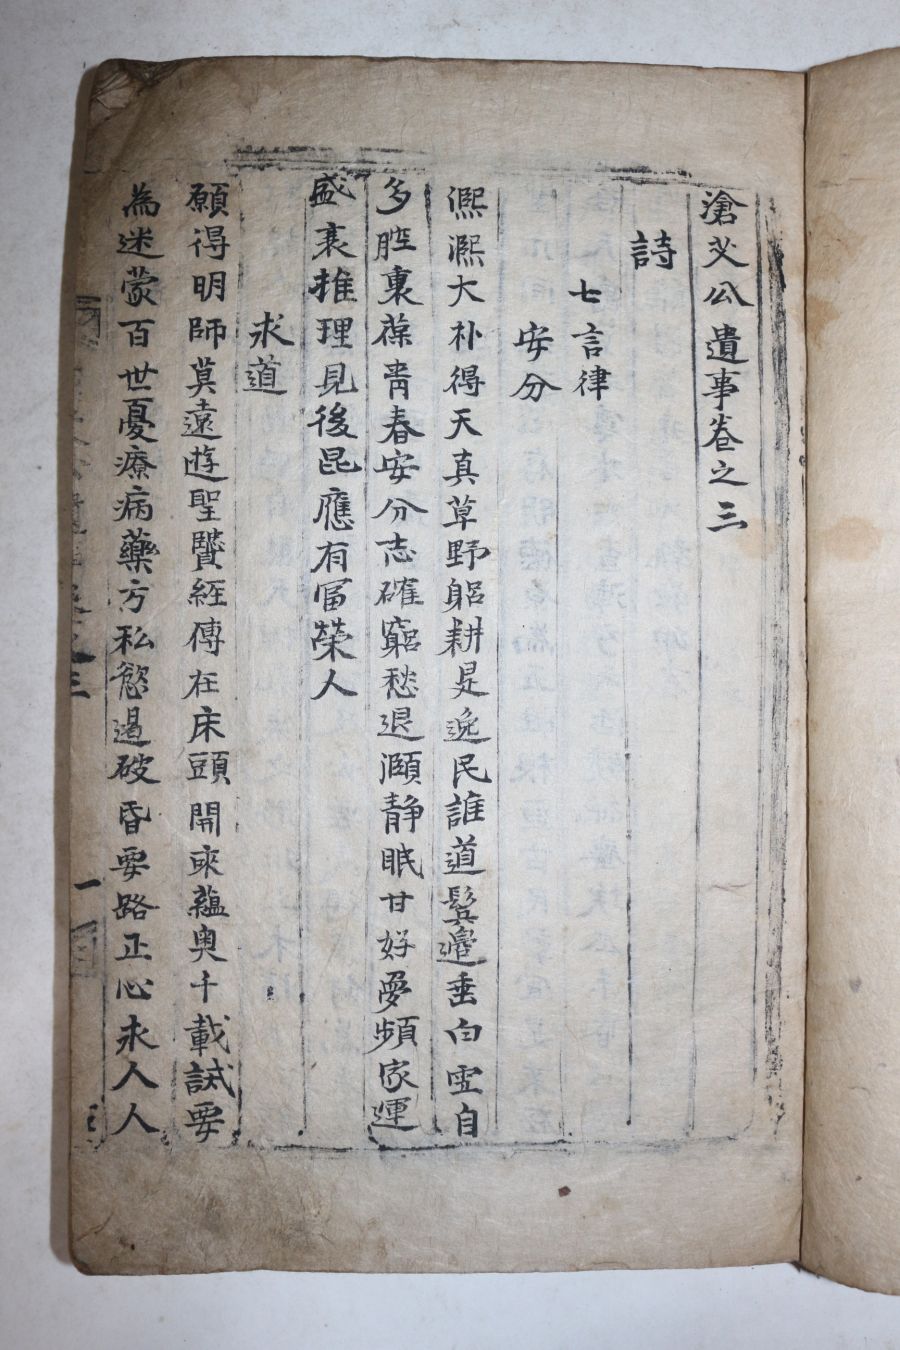 滄叟公遺事卷之三
詩
七言律
安分
凞凞大朴得天真草野躬耕是逸民誰道鬂邉垂白雪自
多腔裏葆青春安分志確窮愁退灝靜眠甘好夢頻家運
盛衰推理見後昆應有冨榮人
求道
願得明師莫遠遊聖贒經傳在床頭開來蘊奥千載試要
為迷蒙百世憂療病藥方私慾遏破昏要路正心求人人
一